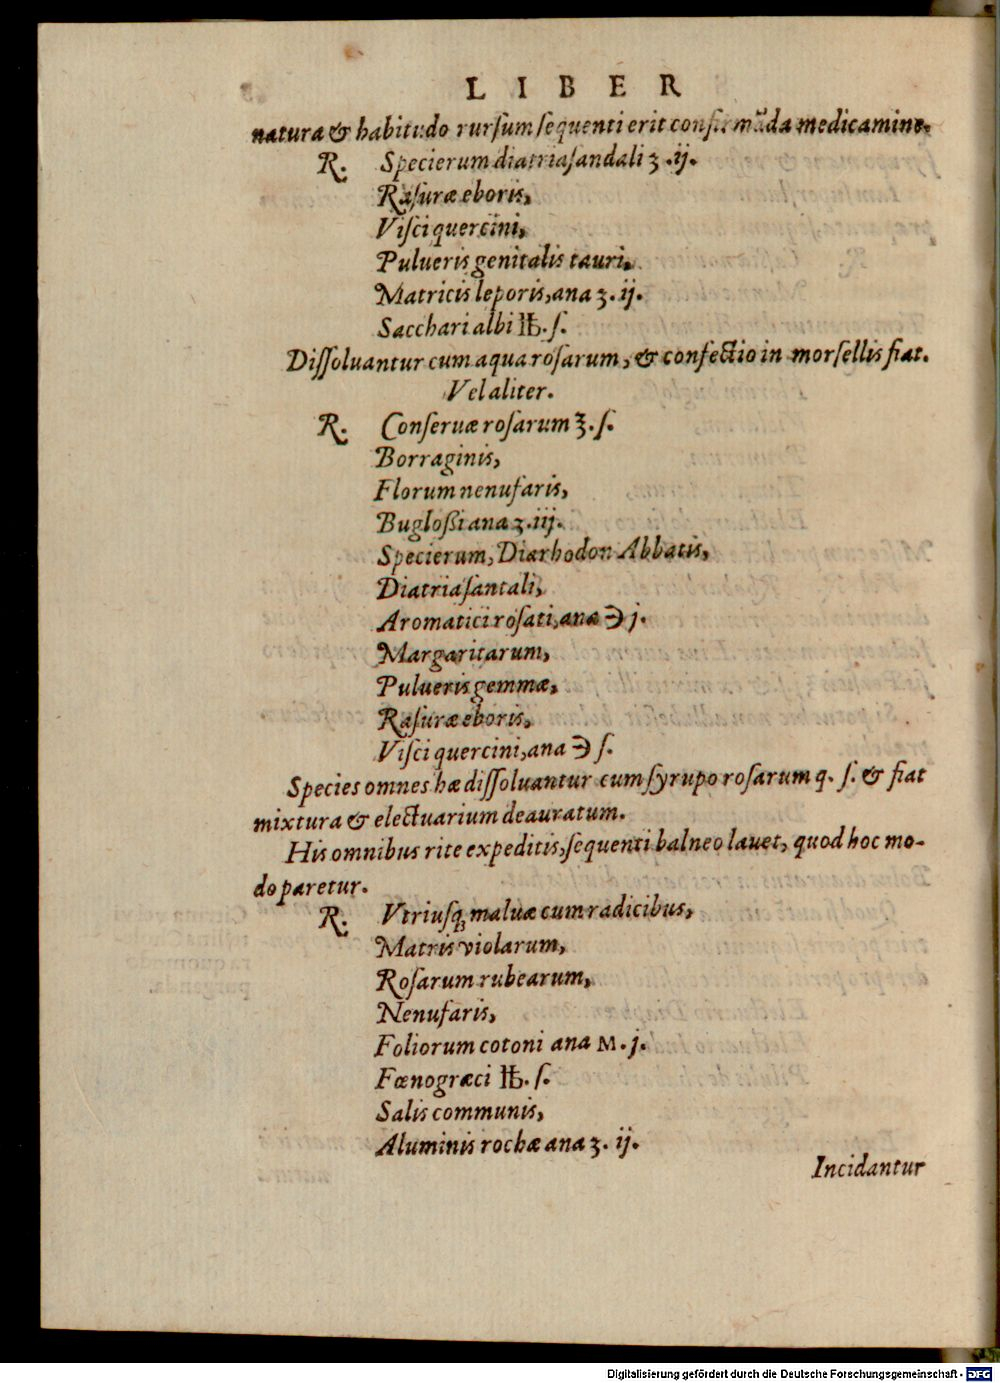 LIBER
natura & habitudo rursum sequenti erit confirmãda medicamine.
℞. Specierum diatriasandali ʒ.ij.
Rasuræ eboris,
Visci quercini,
Pulueris genitalis tauri,
Matricis leporis, ana ʒ.ij.
Sacchari albi ℔.ſ.
Dissoluantur cum aqua rosarum, & confectio in morsellis fiat.
Vel aliter.
℞. Conseruæ rosarum ℥.ſ.
Borraginis,
Florum nenufaris,
Bugloßi ana ʒ.iij.
Specierum, Diarhodon Abbatis,
Diatriasantali,
Aromatici rosati, ana ℈ j.
Margaritarum,
Pulueris gemmæ,
Rasuræ eboris,
Visci quercini, ana ℈ ſ.
Species omnes hæ dissoluantur cum syrupo rosarum q. ſ. & fiat
mixtura & electuarium deauratum.
His omnibus rite expeditis, sequenti balneo lauet, quod hoc mo-
do paretur.
℞. Vtriusq; maluæ cum radicibus,
Matris violarum,
Rosarum rubearum,
Nenufaris,
Foliorum cotoni ana M.j.
Fœnogræci ℔.ſ.
Salis communis,
Aluminis rochæ ana ʒ.ij.
Incidantur
Digitalisierung gefördert durch die Deutsche Forschungsgemeinschaft - DFG